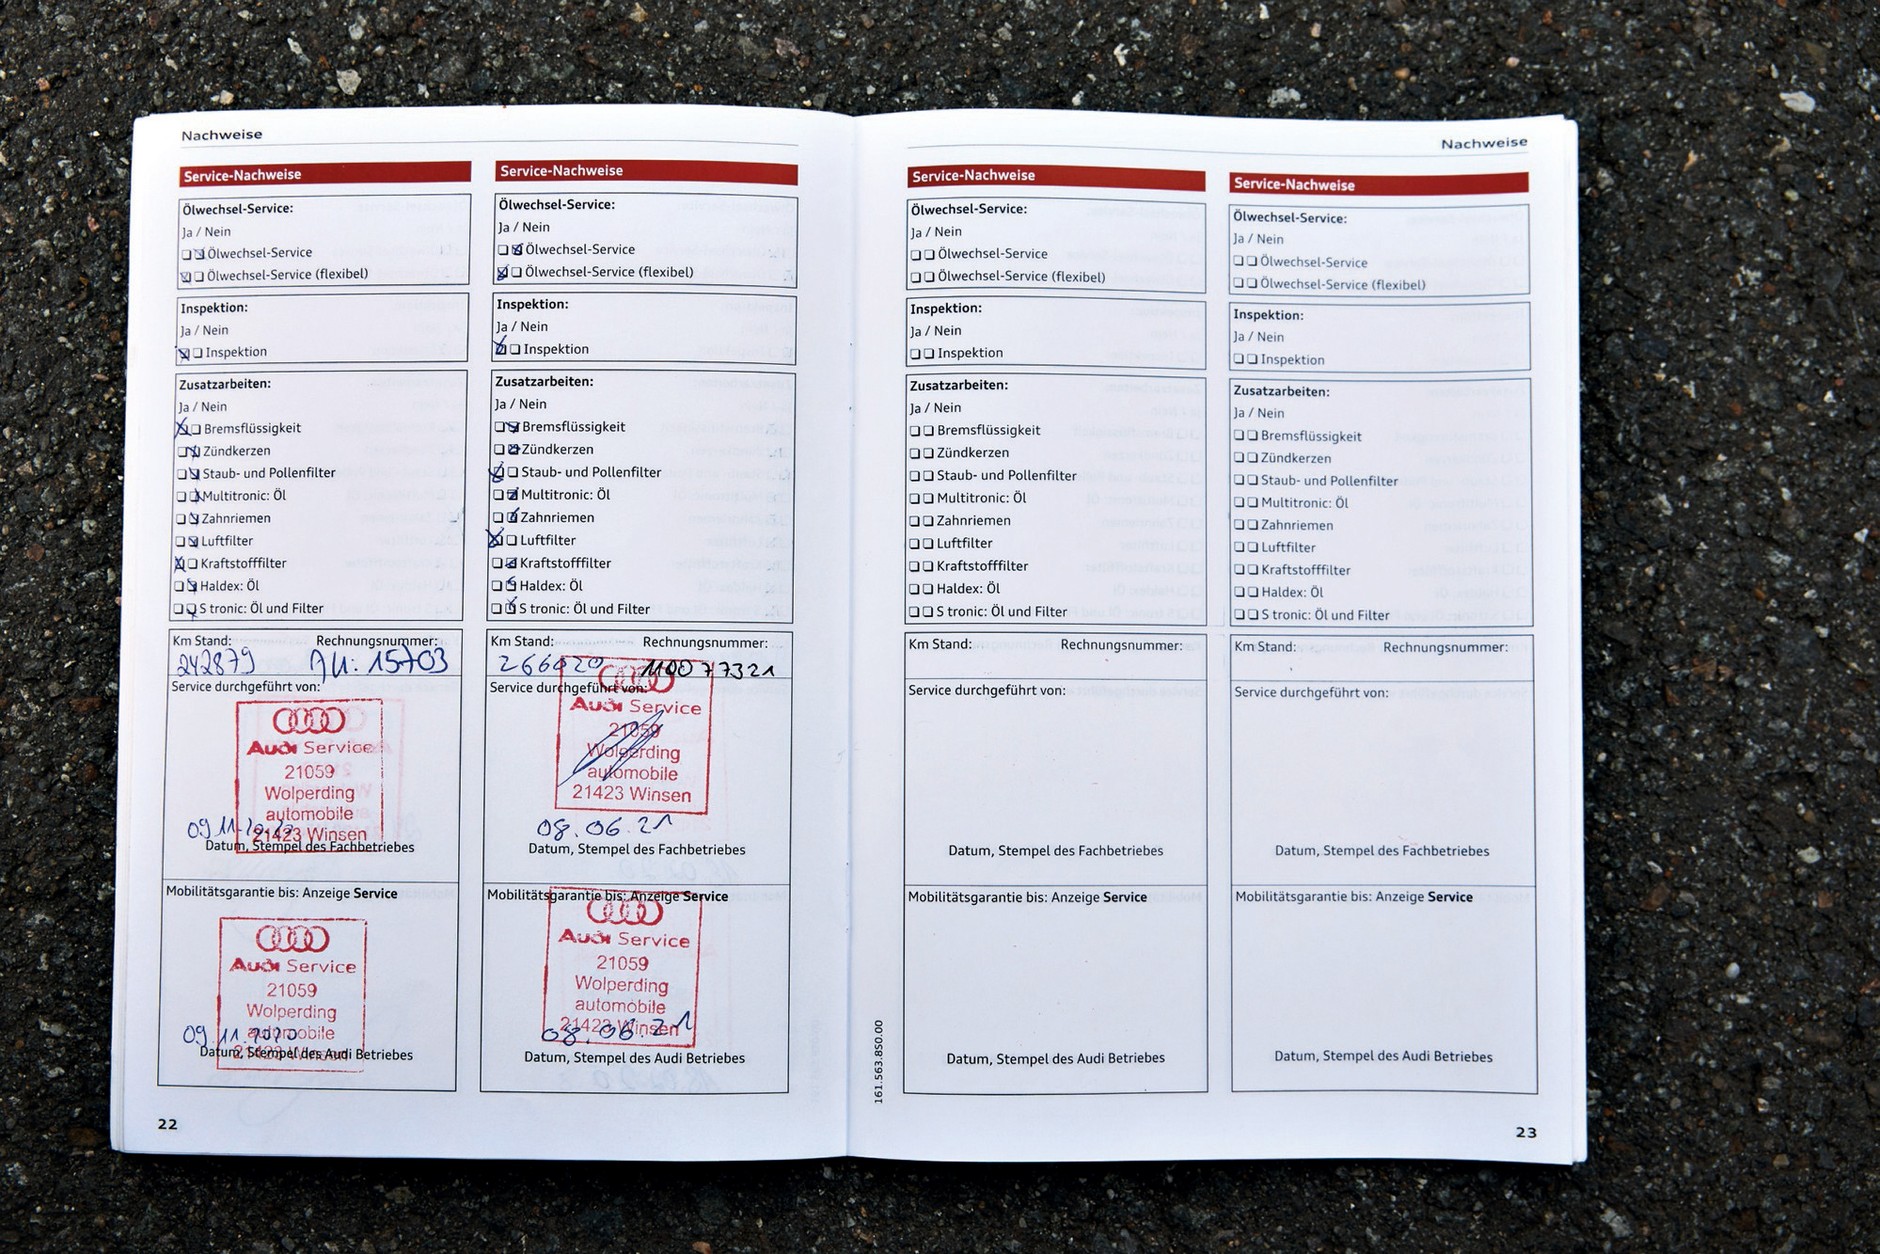 Nachweise
Service-Nachweise
Ölwechsel-Service:
Ja / Nein
Ölwechsel-Service
Ölwechsel-Service (flexibel)
Inspektion:
Ja / Nein
Inspektion
Zusatzarbeiten:
Ja / Nein
Bremsflüssigkeit
Zündkerzen
Staub- und Pollenfilter
Multitronic: Öl
Zahnriemen
Luftfilter
Kraftstofffilter
Haldex: Öl
S tronic: Öl und Filter
Km Stand: Rechnungsnummer:
242879 AU: 15703
Service durchgeführt von:
Audi Service
21059
Wolperding
automobile
21423 Winsen
09.11.2020
Datum, Stempel des Fachbetriebes
Mobilitätsgarantie bis: Anzeige Service
Audi Service
21059
Wolperding
automobile
21423 Winsen
09.11.2020
Datum, Stempel des Audi Betriebes
22
Service-Nachweise
Ölwechsel-Service:
Ja / Nein
Ölwechsel-Service
Ölwechsel-Service (flexibel)
Inspektion:
Ja / Nein
Inspektion
Zusatzarbeiten:
Ja / Nein
Bremsflüssigkeit
Zündkerzen
Staub- und Pollenfilter
Multitronic: Öl
Zahnriemen
Luftfilter
Kraftstofffilter
Haldex: Öl
S tronic: Öl und Filter
Km Stand: Rechnungsnummer:
266020 11007321
Service durchgeführt von:
Audi Service
21059
Wolperding
automobile
21423 Winsen
08.06.21
Datum, Stempel des Fachbetriebes
Mobilitätsgarantie bis: Anzeige Service
Audi Service
21059
Wolperding
automobile
21423 Winsen
08.06.21
Datum, Stempel des Audi Betriebes
Nachweise
Service-Nachweise
Ölwechsel-Service:
Ja / Nein
Ölwechsel-Service
Ölwechsel-Service (flexibel)
Inspektion:
Ja / Nein
Inspektion
Zusatzarbeiten:
Ja / Nein
Bremsflüssigkeit
Zündkerzen
Staub- und Pollenfilter
Multitronic: Öl
Zahnriemen
Luftfilter
Kraftstofffilter
Haldex: Öl
S tronic: Öl und Filter
Km Stand: Rechnungsnummer:
Service durchgeführt von:
Datum, Stempel des Fachbetriebes
Mobilitätsgarantie bis: Anzeige Service
Datum, Stempel des Audi Betriebes
161.563.850.00
Service-Nachweise
Ölwechsel-Service:
Ja / Nein
Ölwechsel-Service
Ölwechsel-Service (flexibel)
Inspektion:
Ja / Nein
Inspektion
Zusatzarbeiten:
Ja / Nein
Bremsflüssigkeit
Zündkerzen
Staub- und Pollenfilter
Multitronic: Öl
Zahnriemen
Luftfilter
Kraftstofffilter
Haldex: Öl
S tronic: Öl und Filter
Km Stand: Rechnungsnummer:
Service durchgeführt von:
Datum, Stempel des Fachbetriebes
Mobilitätsgarantie bis: Anzeige Service
Datum, Stempel des Audi Betriebes
23